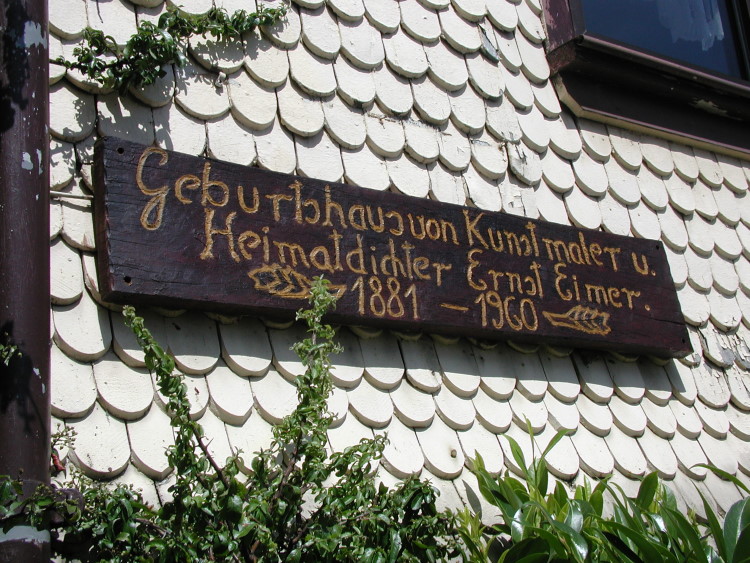 Geburtshaus von Kunstmaler u.
Heimatdichter Ernst Eimer.
1881 – 1960